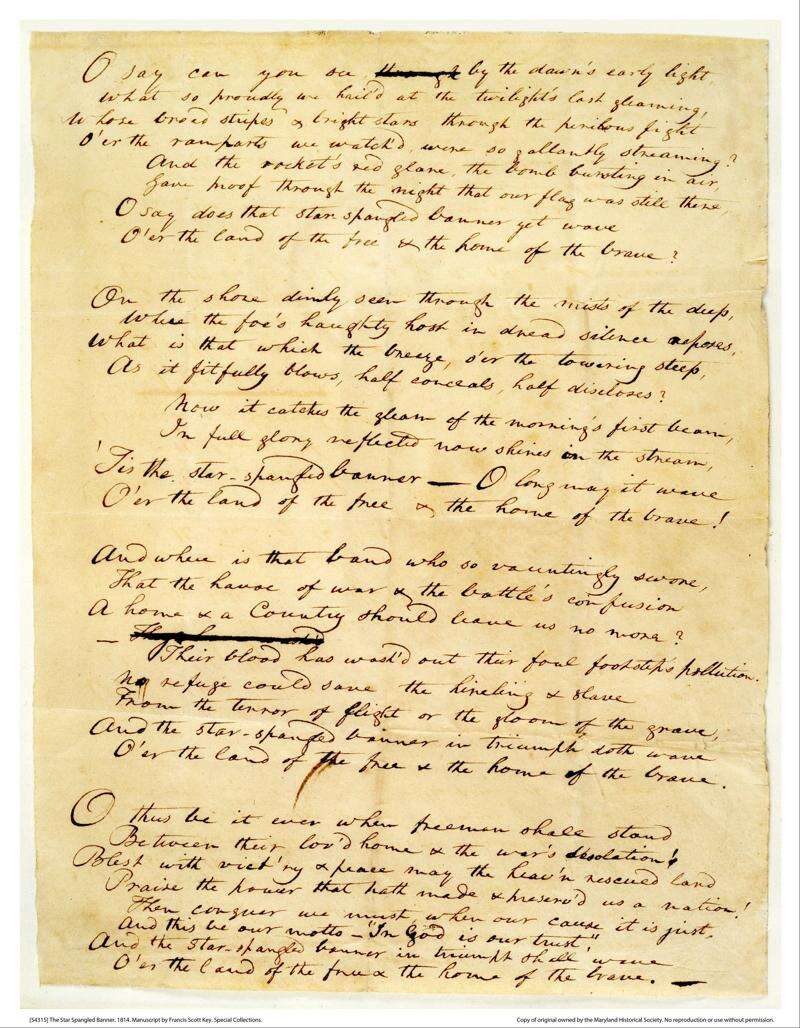 O say can you see through by the dawn's early light
What so proudly we hail'd at the twilight's last gleaming,
Whose broad stripes & bright stars through the perilous fight
O'er the ramparts we watch'd, were so gallantly streaming?
And the rocket's red glare, the bomb bursting in air,
Gave proof through the night that our flag was still there,
O say does that star spangled banner yet wave
O'er the land of the free & the home of the brave?
On the shore dimly seen through the mists of the deep,
Where the foe's haughty host in dread silence reposes,
What is that which the breeze, o'er the towering steep,
As it fitfully blows, half conceals, half discloses?
Now it catches the gleam of the morning's first beam,
In full glory reflected now shines in the stream,
'Tis the star-spangled banner — O long may it wave
O'er the land of the free & the home of the brave!
And where is that band who so vauntingly swore,
That the havoc of war & the battle's confusion
A home & a Country should leave us no more?
—
Their blood has wash'd out their foul footstep's pollution.
No refuge could save the hireling & slave
From the terror of flight or the gloom of the grave,
And the star-spangled banner in triumph doth wave
O'er the land of the free & the home of the brave.
O thus be it ever when freemen shall stand
Between their lov'd home & the war's desolation!
Blest with vict'ry & peace may the heav'n rescued land
Praise the power that hath made & preserv'd us a nation!
Then conquer we must, when our cause it is just,
And this be our motto — "In God is our trust,"
And the star-spangled banner in triumph shall wave
O'er the land of the free & the home of the brave. —
[54315] The Star Spangled Banner. 1814. Manuscript by Francis Scott Key. Special Collections.
Copy of original owned by the Maryland Historical Society. No reproduction or use without permission.